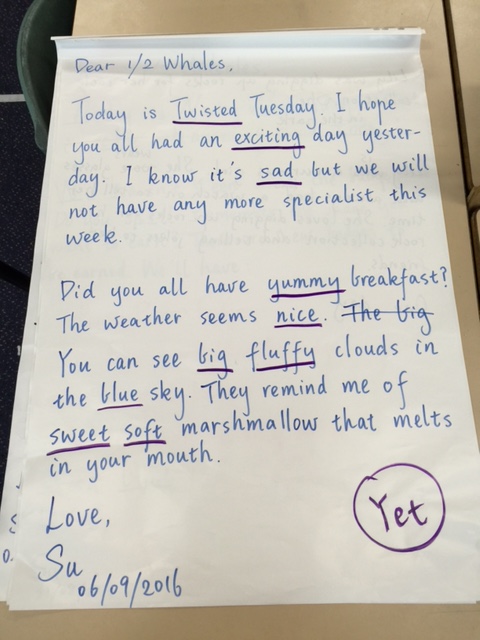 Dear 1/2 Whales,
Today is Twisted Tuesday. I hope
you all had an exciting day yester-
day. I know it's sad but we will
not have any more specialist this
week.
Did you all have yummy breakfast?
The weather seems nice. The big
You can see big fluffy clouds in
the blue sky. They remind me of
sweet soft marshmallow that melts
in your mouth.
Love,
Yet
Su
06/09/2016